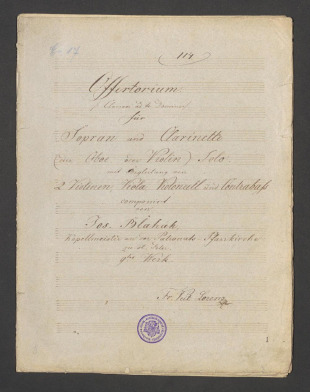 114
Offertorium
für
Sopran und Clarinette
(oder Oboe oder Violin) Solo
mit Begleitung von
2 Violinen, Viola Violoncell und Contrabaß
componirt
von
Jos. Blahak
Kapellmeister an der Patronats-Pfarrkirche
zu St. Peter
Werk